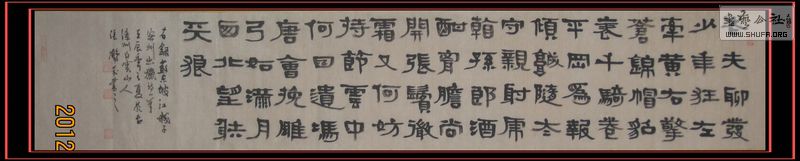 夫聊發
少年狂左
牽黃右擎
蒼錦帽貂
裘千騎卷
平岡為報
傾城隨太
守親射虎
看孫郎酒
酣胸膽尚
開張鬢微
霜又何妨
持節雲中
何日遣馮
唐會挽雕
弓如滿月
西北望射
天狼
右錄蘇東坡江城子
密州出獵詞一首
壬辰年之夏
白雲山人
2012
WWW.SHUFA.ORG